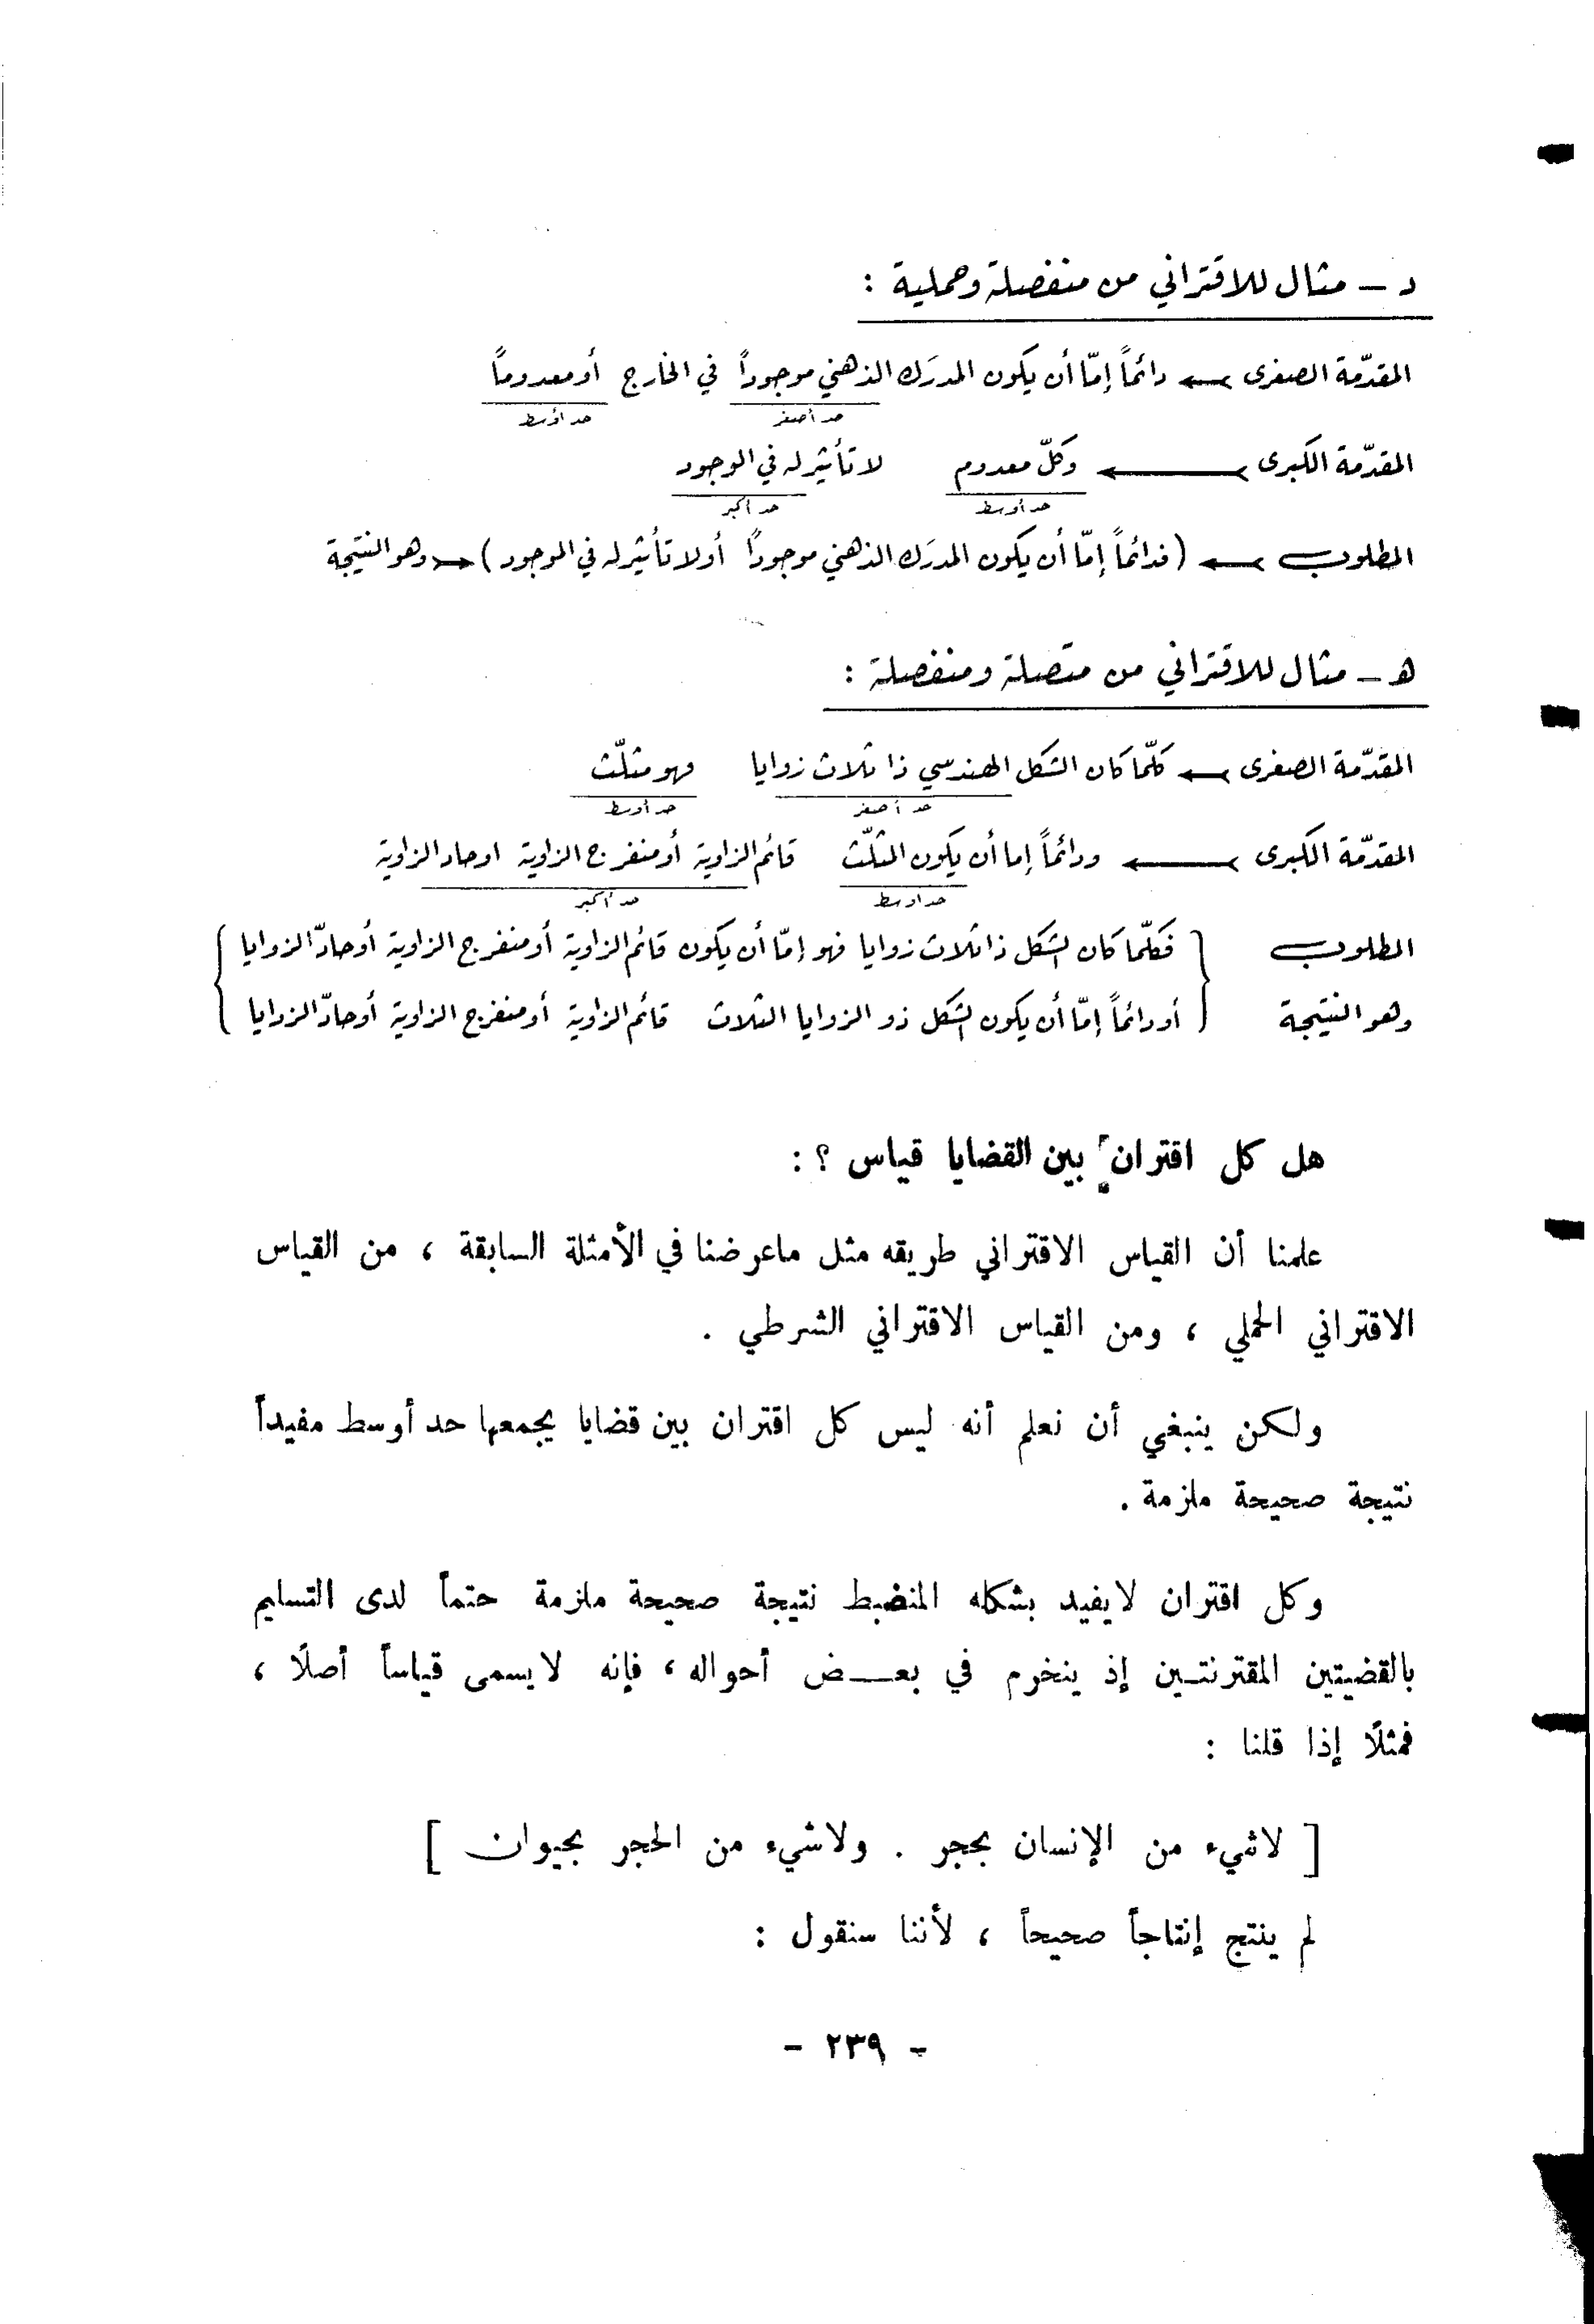 د ـ مثال للاقتراني من منفصلة وحملية :
المقدّمة الصغرى ← دائماً إمّا أن يكون المدرَك الذهني موجوداً في الخارج أو معدوماً
حد أصغر حد أوسط
المقدّمة الكبرى ← وكلّ معدوم لا تأثير له في الوجود
حد أوسط حد أكبر
المطلوب ← (فدائماً إمّا أن يكون المدرَك الذهني موجوداً أو لا تأثير له في الوجود) → وهو النتيجة
هـ ـ مثال للاقتراني من متصلة ومنفصلة :
المقدّمة الصغرى ← كلّما كان الشكل الهندسي ذا ثلاث زوايا فهو مثلّث
حد أصغر حد أوسط
المقدّمة الكبرى ← ودائماً إما أن يكون المثلّث قائم الزاوية أو منفرج الزاوية او حاد الزاوية
حد اوسط حد أكبر
المطلوب { فكلّما كان الشكل ذا ثلاث زوايا فهو إمّا أن يكون قائم الزاوية أو منفرج الزاوية أو حادّ الزوايا }
وهو النتيجة { أو دائماً إمّا أن يكون الشكل ذو الزوايا الثلاث قائم الزاوية أو منفرج الزاوية أو حادّ الزوايا }
هل كل اقتران بين القضايا قياس ؟ :
علمنا أن القياس الاقتراني طريقه مثل ماعرضنا في الأمثلة السابقة ، من القياس
الاقتراني الحملي ، ومن القياس الاقتراني الشرطي .
ولكن ينبغي أن نعلم أنه ليس كل اقتران بين قضايا يجمعها حد أوسط مفيداً
نتيجة صحيحة ملزمة .
وكل اقتران لايفيد بشكله المنضبط نتيجة صحيحة ملزمة حتماً لدى التسليم
بالقضيتين المقترنتين إذ ينخرم في بعــض أحواله ، فإنه لايسمى قياساً أصلًا ،
فمثلًا إذا قلنا :
[ لاشيء من الإنسان بحجر . ولاشيء من الحجر بحيوان ]
لم ينتج إنتاجاً صحيحاً ، لأننا سنقول :
- ٢٣٩ -